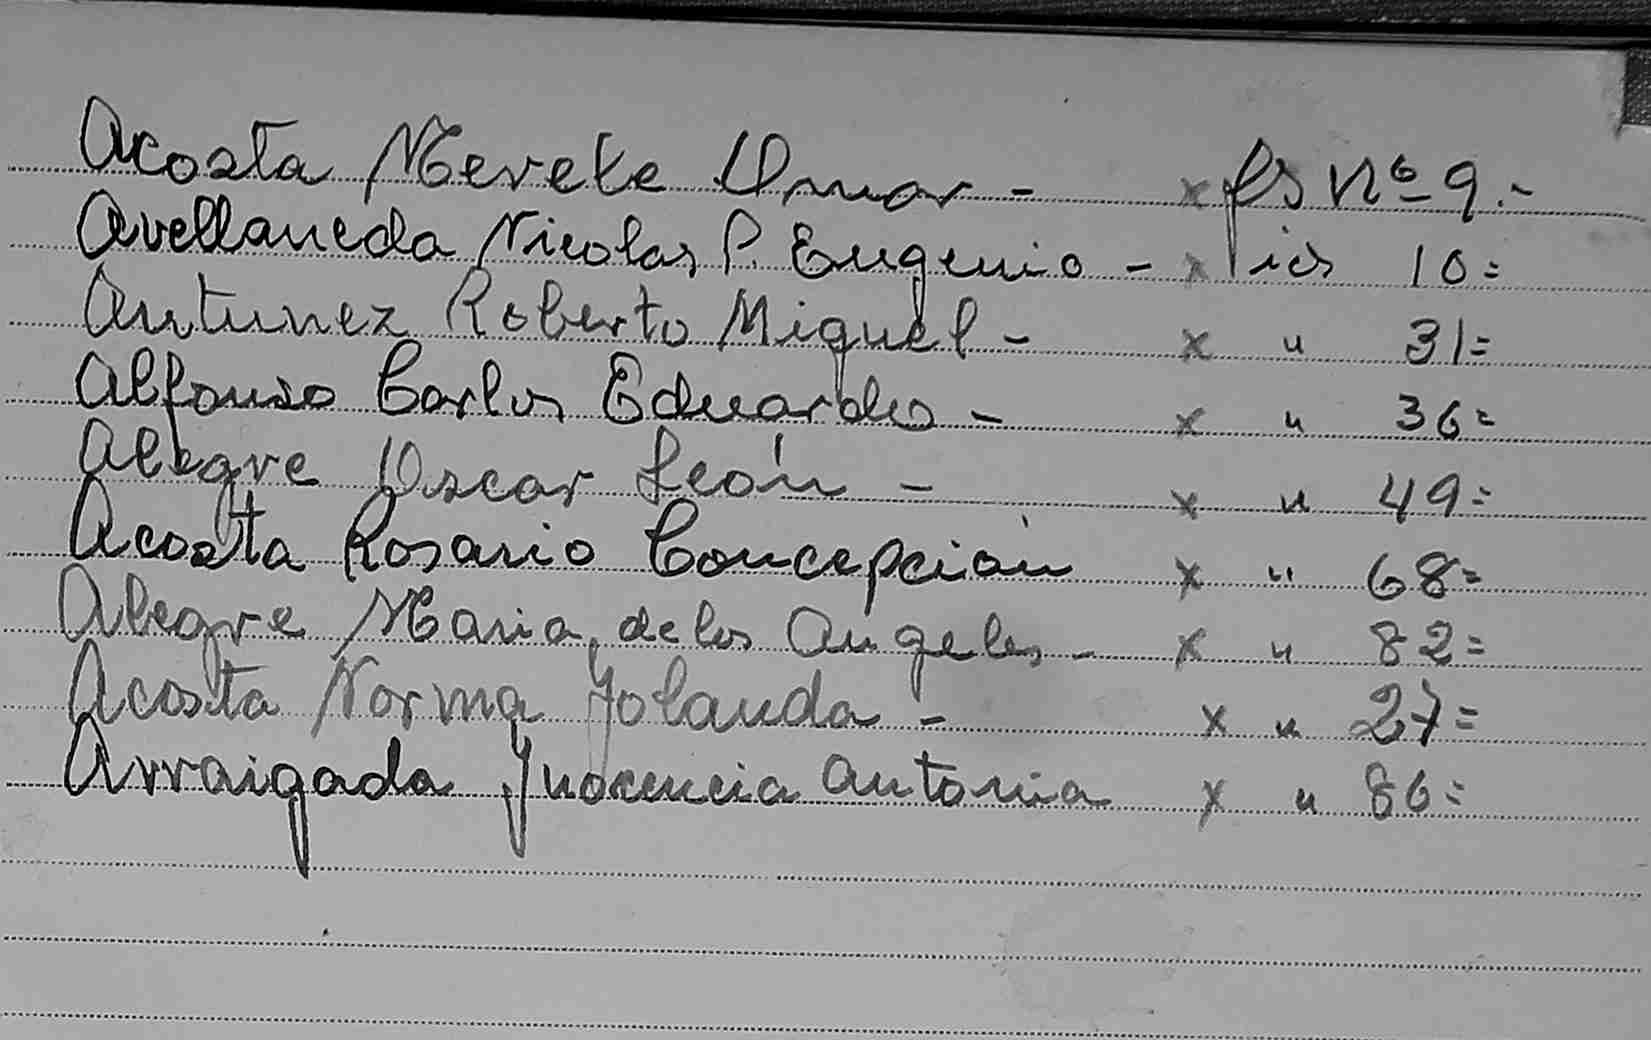 Acosta Nevele Omar - x fs nº 9.-
Avellaneda Nicolas P. Eugenio - x 10=
Antunez Roberto Miguel - x " 31=
Alfonso Carlos Eduardo - x " 36=
Alegre Oscar León - x " 49=
Acosta Rosario Concepción x " 68=
Alegre Maria de los Angeles - x " 82=
Acosta Norma Yolanda - x " 27=
Arraigada Inocencia Antonia x " 86=